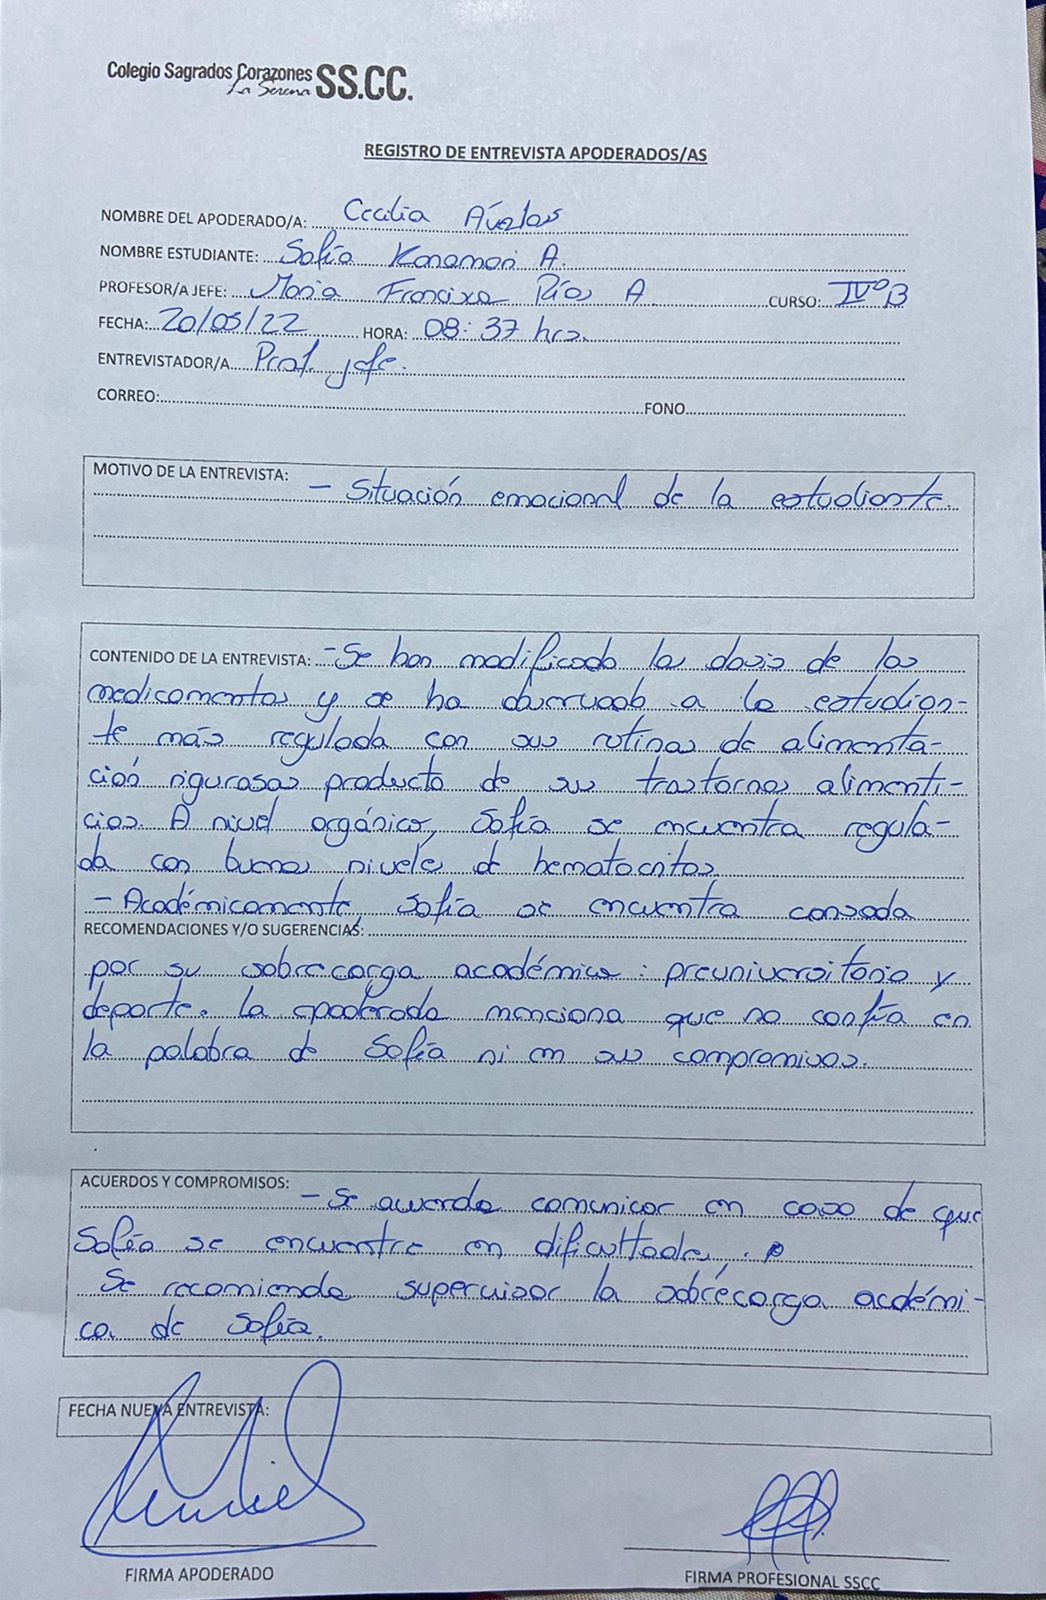 Colegio Sagrados Corazones SS.CC.
La Serena
REGISTRO DE ENTREVISTA APODERADOS/AS
NOMBRE DEL APODERADO/A: Cecilia Ávalos
NOMBRE ESTUDIANTE: Sofía Kanamori A.
PROFESOR/A JEFE: María Francisca Ríos A. CURSO: IVºB
FECHA: 20/05/22 HORA: 08:37 hrs.
ENTREVISTADOR/A Prof. jefe.
CORREO: FONO
MOTIVO DE LA ENTREVISTA: - Situación emocional de la estudiante.
CONTENIDO DE LA ENTREVISTA: - Se han modificado las dosis de los
medicamentos y se ha observado a la estudian-
te más regulada con sus rutinas de alimenta-
ción rigurosas producto de sus trastornos alimenti-
cios. A nivel orgánico, Sofía se encuentra regula-
da con buenos niveles de hematocritos.
- Académicamente, Sofía se encuentra cansada
RECOMENDACIONES Y/O SUGERENCIAS:
por su sobrecarga académica: preuniversitario y
deporte. La apoderada menciona que no confía en
la palabra de Sofía ni en sus compromisos.
ACUERDOS Y COMPROMISOS: - Se acuerda comunicar en caso de que
Sofía se encuentre en dificultades.
Se recomienda supervisar la sobrecarga académi-
ca de Sofía.
FECHA NUEVA ENTREVISTA:
FIRMA APODERADO
FIRMA PROFESIONAL SSCC